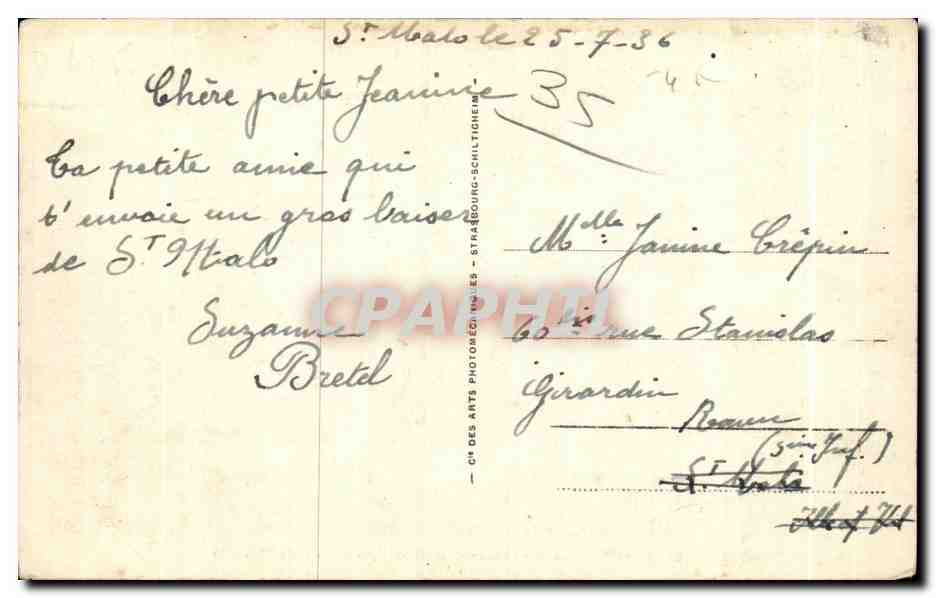 St Malo le 25-7-36
Chère petite Jeanine
Ta petite amie qui
t'envoie un gros baiser
de St Malo
Suzanne
Bretel
35
Cie DES ARTS PHOTOMÉCANIQUES - STRASBOURG-SCHILTIGHEIM
CPAPHIL
Mlle Janine Crépin
60 bis rue Stanislas
Girardin
Rouen
(Sine Inf.)
St Malo